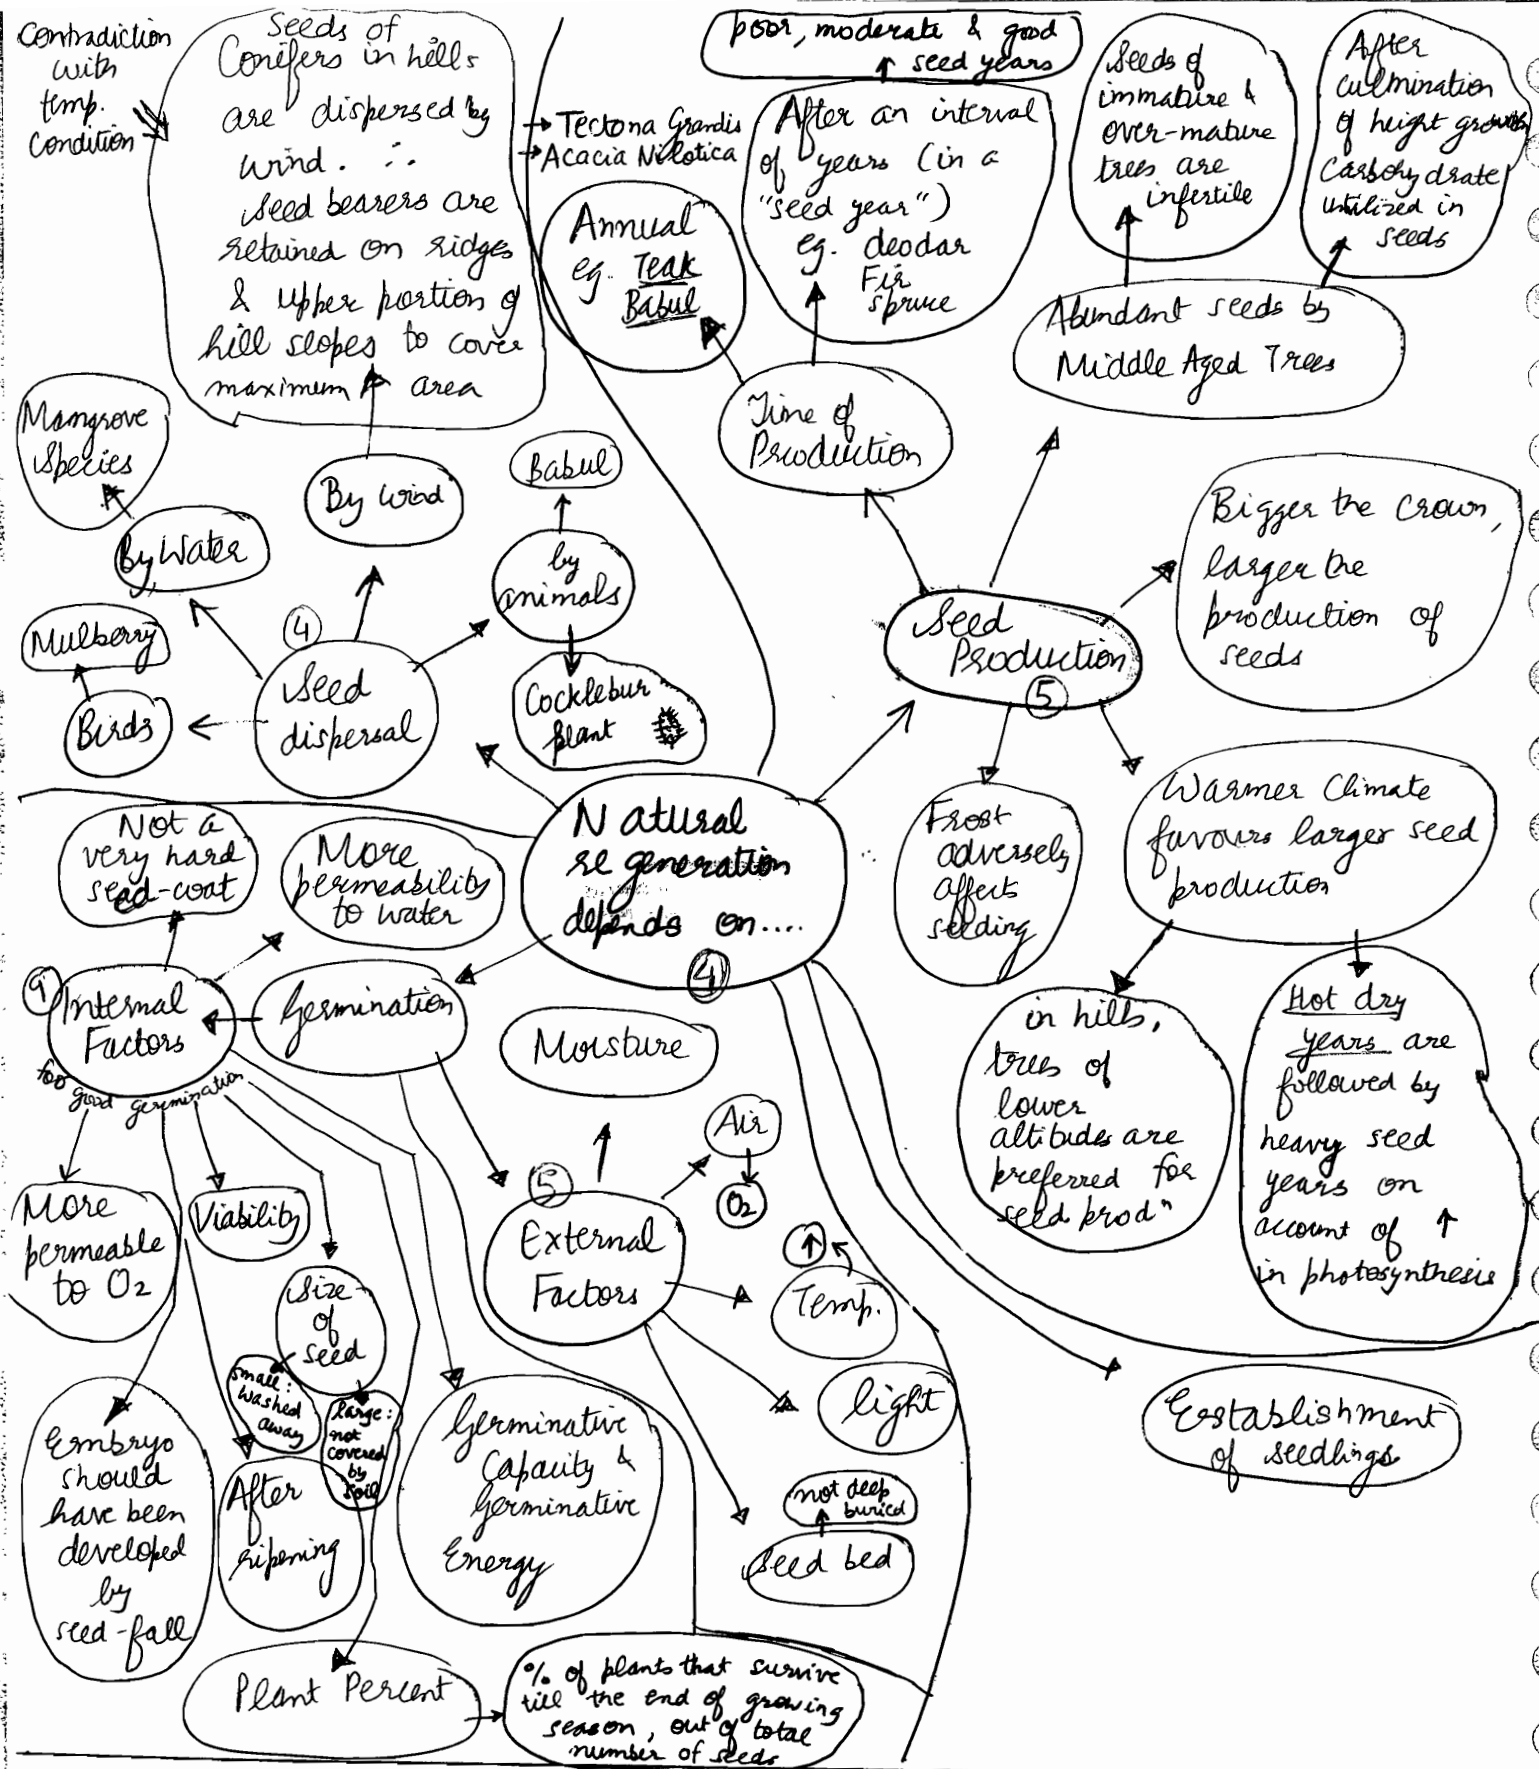 Contradiction
with
temp.
condition
Seeds of
Conifers in hills
are dispersed by
wind. ∴
seed bearers are
retained on ridges
& upper portion of
hill slopes to cover
maximum area
→ Tectona Grandis
→ Acacia Nilotica
Annual
eg. Teak
Babul
poor, moderate & good
seed years
After an interval
of years (in a
"seed year")
eg. deodar
Fir
spruce
Seeds of
immature &
over-mature
trees are
infertile
After
culmination
of height growth
carbohydrate
utilized in
seeds
Abundant seeds by
Middle Aged Trees
Time of
Production
Mangrove
Species
By Wind
Babul
By Water
by
animals
Mulberry
Birds
④
Seed
dispersal
Cocklebur
plant
Seed
Production
⑤
Bigger the crown,
larger the
production of
seeds
Frost
adversely
affects
seeding
Warmer Climate
favours larger seed
production
in hills,
trees of
lower
altitudes are
preferred for
seed prodⁿ
Hot dry
years are
followed by
heavy seed
years on
account of ↑
in photosynthesis
Natural
regeneration
depends on....
④
Not a
very hard
seed-coat
More
permeability
to water
⑨
Internal
Factors
for good germination
Germination
Moisture
Air
O₂
⑤
External
Factors
↑
Temp.
light
not deep
buried
Seed bed
More
permeable
to O₂
Viability
Size
of
seed
small:
washed
away
large:
not
covered
by
soil
Embryo
should
have been
developed
by
seed-fall
After
ripening
Germinative
Capacity &
Germinative
Energy
Plant Percent
% of plants that survive
till the end of growing
season, out of total
number of seeds
Establishment
of seedlings